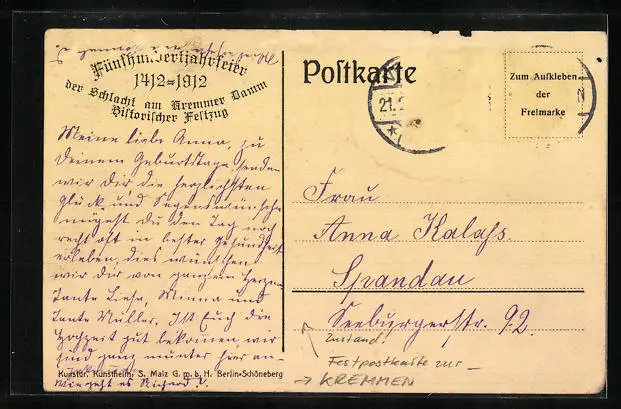 Fünfhundertjahrfeier
1412=1912
der Schlacht am Kremmer Damm
Historischer Festzug
Meine liebe Anna, zu
Deinem Geburtstage senden
wir Dir die herzlichsten
Glück und Segenswünsche
mögest Du den Tag noch
recht oft in bester Gesundheit
erleben, dies wünschen
wir Dir von ganzem Herzen
Tante Liesa, Minna und
Tante Müller. Ist Euch die
Hochzeit gut bekommen, wir
sind ganz munter hier an-
Wie geht es Richard?
Kunstdr. Kunstheim: S. Malz G. m. b. H. Berlin-Schöneberg
Postkarte
21.
Zum Aufkleben
der
Freimarke
Frau
Anna Kalass.
Spandau
Seeburgerstr. 92.
Zustand!
Festpostkarte zur —
→ KREMMEN